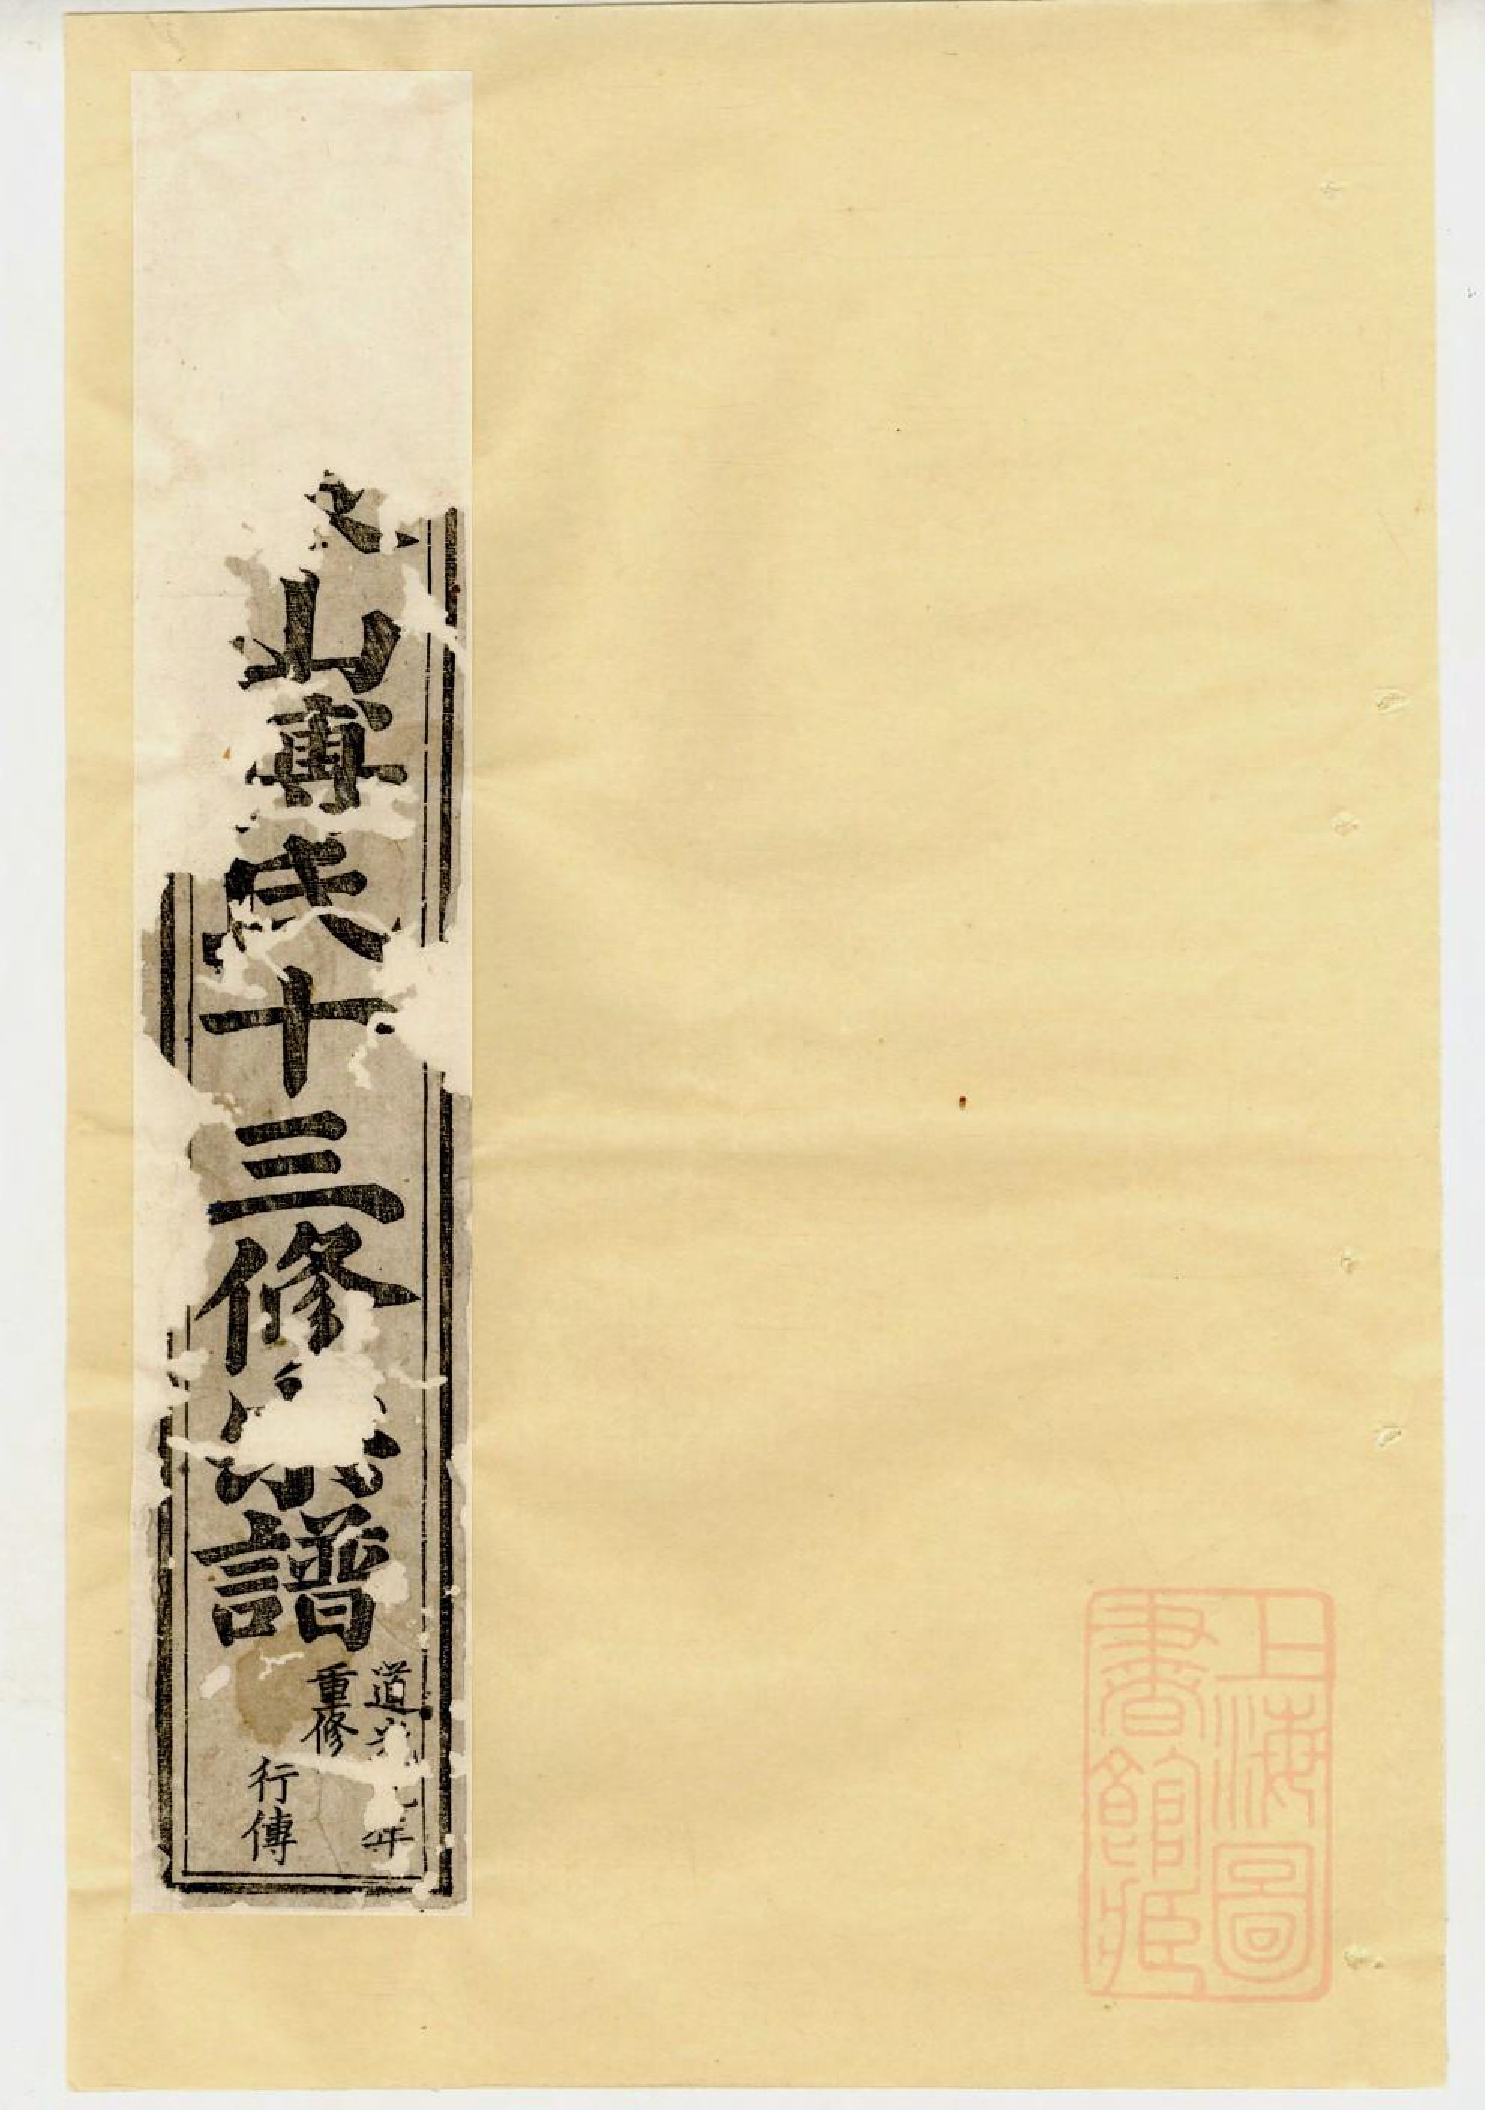 山傅氏十三修宗譜
道光九年
重修
行傳
上海圖
書館藏